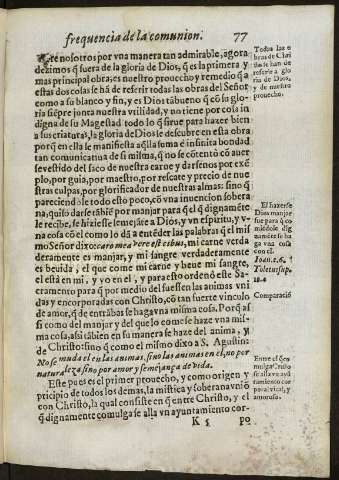 frequencia de la comunion. 77
tre nosotros por vna manera tan admirable, agora
dezimos q̃ fuera de la gloria de Dios, q̃ es la primera y
mas principal obra; es nuestro prouecho y remedio q̃ a
estas dos colas se há de referir todas las obras del Señor
como a su blanco y fin, y es Dios tã bueno q̃ cõ su glo-
ria siẽpre jonta nuestra vtilidad, y no tiene por cosa in
digna de su Magestad todo lo q̃ sirue para hazer bien
a sus criaturas, la gloria de Dios se descubre en esta obra
porq̃ en ella le manifiesta aq̃lla suma e infinita bondad
tan comunicatiua de si misma, q̃ no se cõtentó cõ auer
se vestido del saco de nuestra carne y darsenos por exẽ-
plo, por guia, por maestro, por rescate y precio de nue
stras culpas, por glorificador de nuestras almas: sino q̃
pareciendole todo esto poco, cõ vna inuencion sobera
na, quiso darse tãbiẽ por manjar para q̃ el q̃ dignamẽte
le recibe, se hiziesse semejãte a Dios, y vn espiritu, y v-
na cosa cõ el como lo dá a entẽder las palabras q̃ el mis
mo Señor dixo: caro mea vere est cibus, mi carne verda
deramente es manjar, y mi sangre verdaderamente
es beuida; el que come mi carne y beue mi sangre,
el está en mi, y yo en el, y para esto ordenó este Sa-
cramento para q̃ por medio del fuessen las animas vni
das y encorporadas con Christo, cõ tan fuerte vinculo
de amor, q̃ de entrãbas se haga vna misma cosa. Porq̃ as
si como del manjar y del que lo come se haze vna mis-
ma cosa, assi tãbien en su manera se haze del anima, y
de Christo: sino q̃ como el mismo dixo a S. Agustin:
No se muda el en las animas, sino las animas en el, no por
naturaleza sino por amor y semejança de vida.
Este pues es el primer prouecho, y como origen y
prĩcipio de todos los demas, la mistica y soberana vniõ
con Christo, la qual consiste en q̃ entre Christo, y el
q̃ dignamente comulga se alla vn ayuntamiento cor-
K 5 po
Todas las o
bras de Chri
sto se han de
referir a glo
ria de Dios,
y de nuestro
prouecho.
El hazerse
Dios manjar
fue para q̃ co
miẽdole dig
namẽte se ha
ga vna cosa
con el.
Ioan. c. 6.
Toletus sup.
Comparació
Entre el q̃ co
mulga y Christo
se alla vn ayũ
tamiento cor
poral vical, y
amoroso.